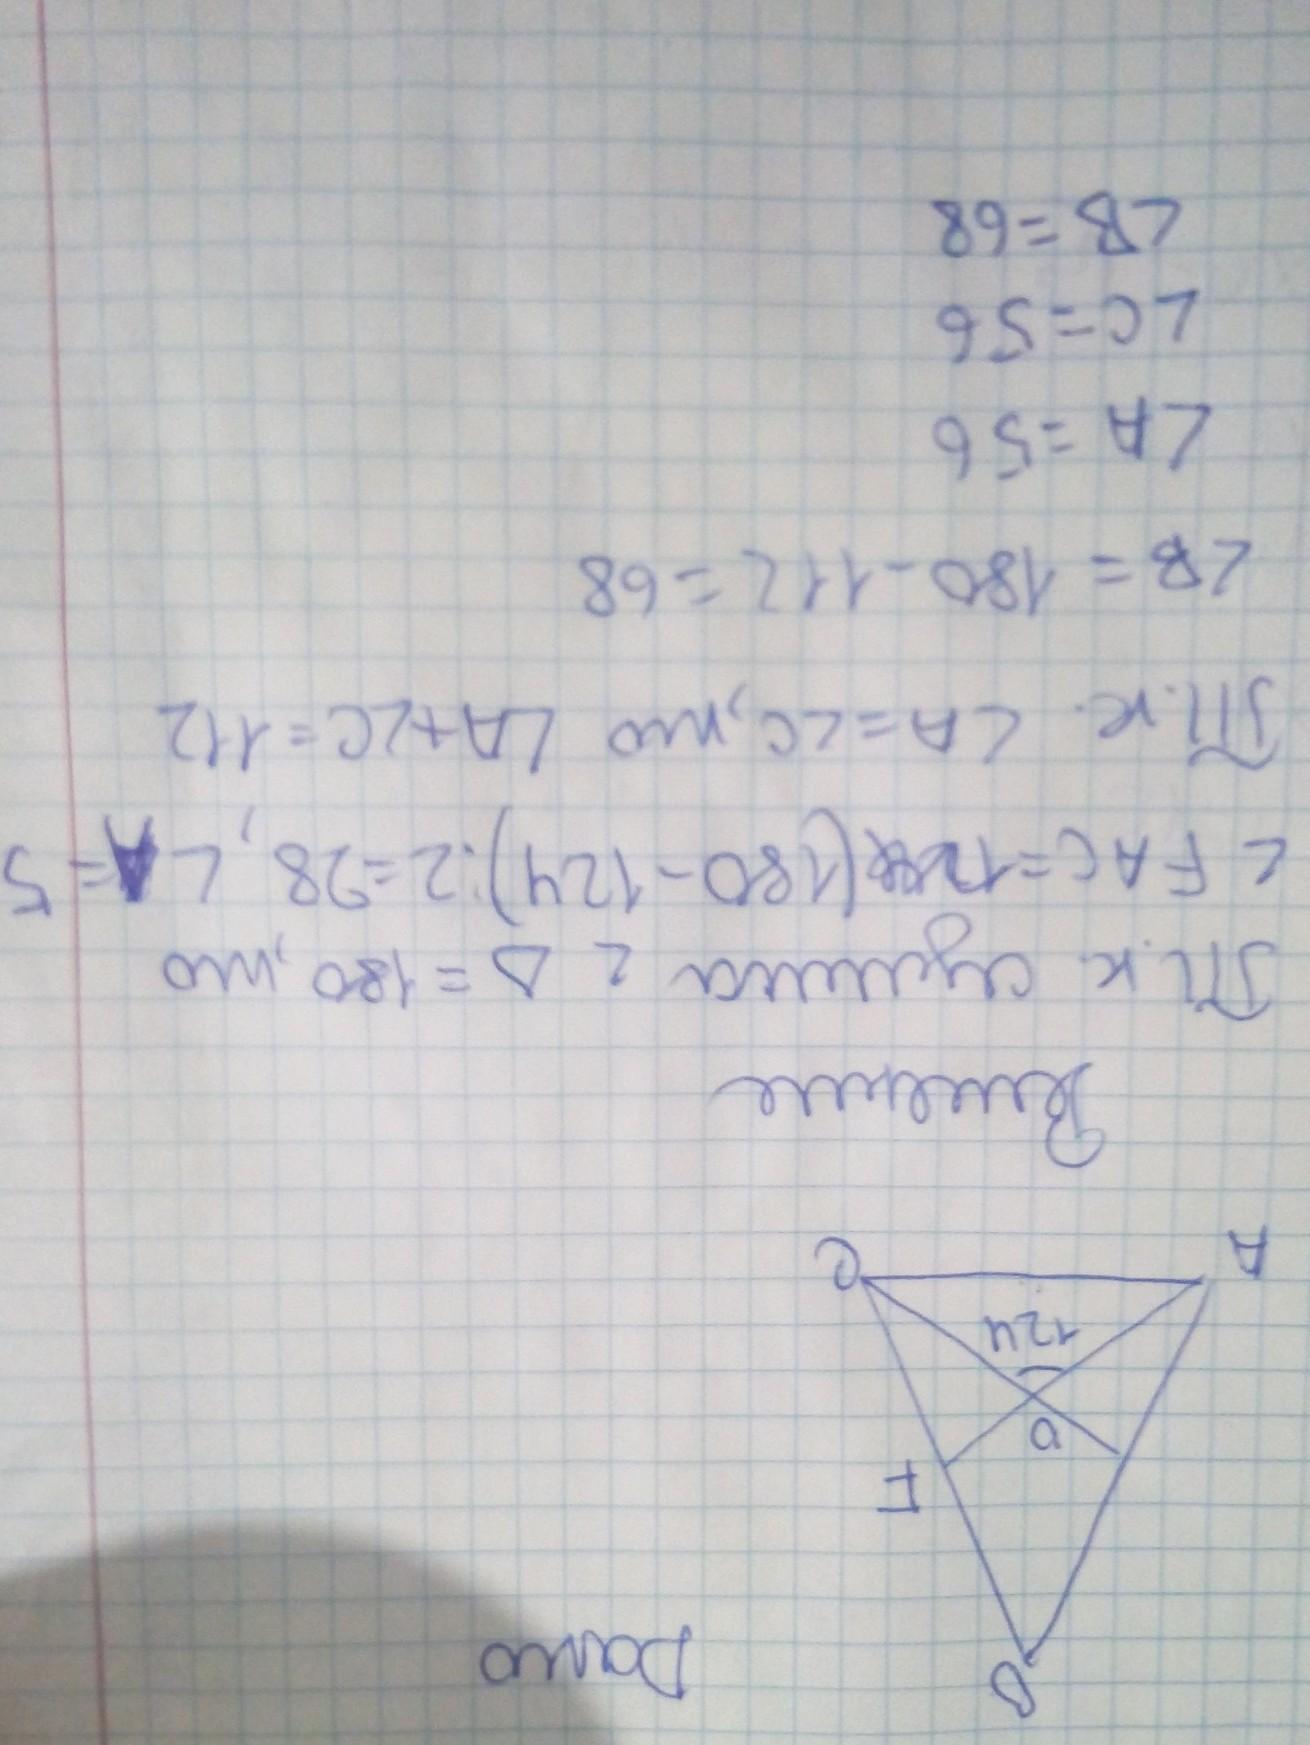 Дано
B
F
O
124
A
C
Решение
Т.к. сумма ∠ Δ = 180, то
∠FAC = (180 - 124) : 2 = 28, ∠A = 5
Т.к. ∠A = ∠C, то ∠A + ∠C = 112
∠B = 180 - 112 = 68
∠A = 56
∠C = 56
∠B = 68